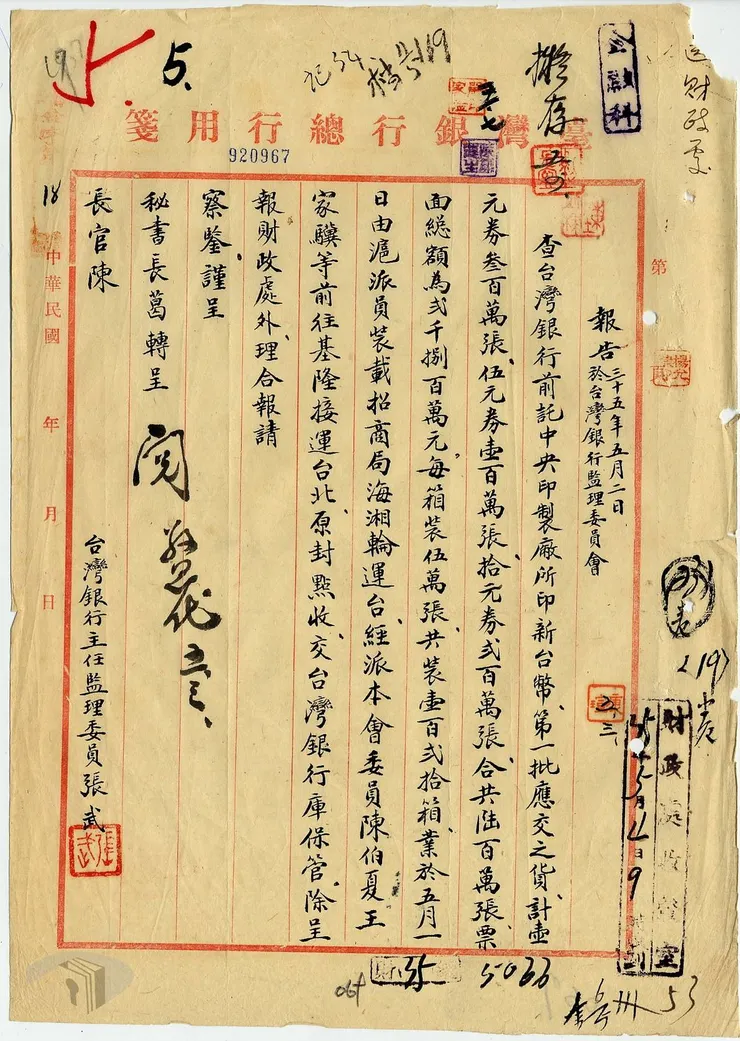 臺灣銀行總行用箋
920967
金融科
擬存
送財政處
5.
第
報告
三十五年五月二日
於台灣銀行監理委員會
查台灣銀行前託中央印製廠所印新台幣、第一批應交之貨、計壹
元券叁百萬張、伍元券壹百萬張、拾元券弍百萬張、合共陸百萬張、票
面總額為弍千捌百萬元、每箱裝伍萬張、共裝壹百弍拾箱、業於五月一
日由滬派員裝載招商局海湘輪運台、經派本會委員陳伯夏王
家驥等前往基隆接運台北、原封點收、交台灣銀行庫保管、除呈
報財政處外、理合報請
察鑒謹呈
秘書長葛轉呈
長官陳
閱
台灣銀行主任監理委員張武
張武
中華民國 年 月 日
18
5066
064
53